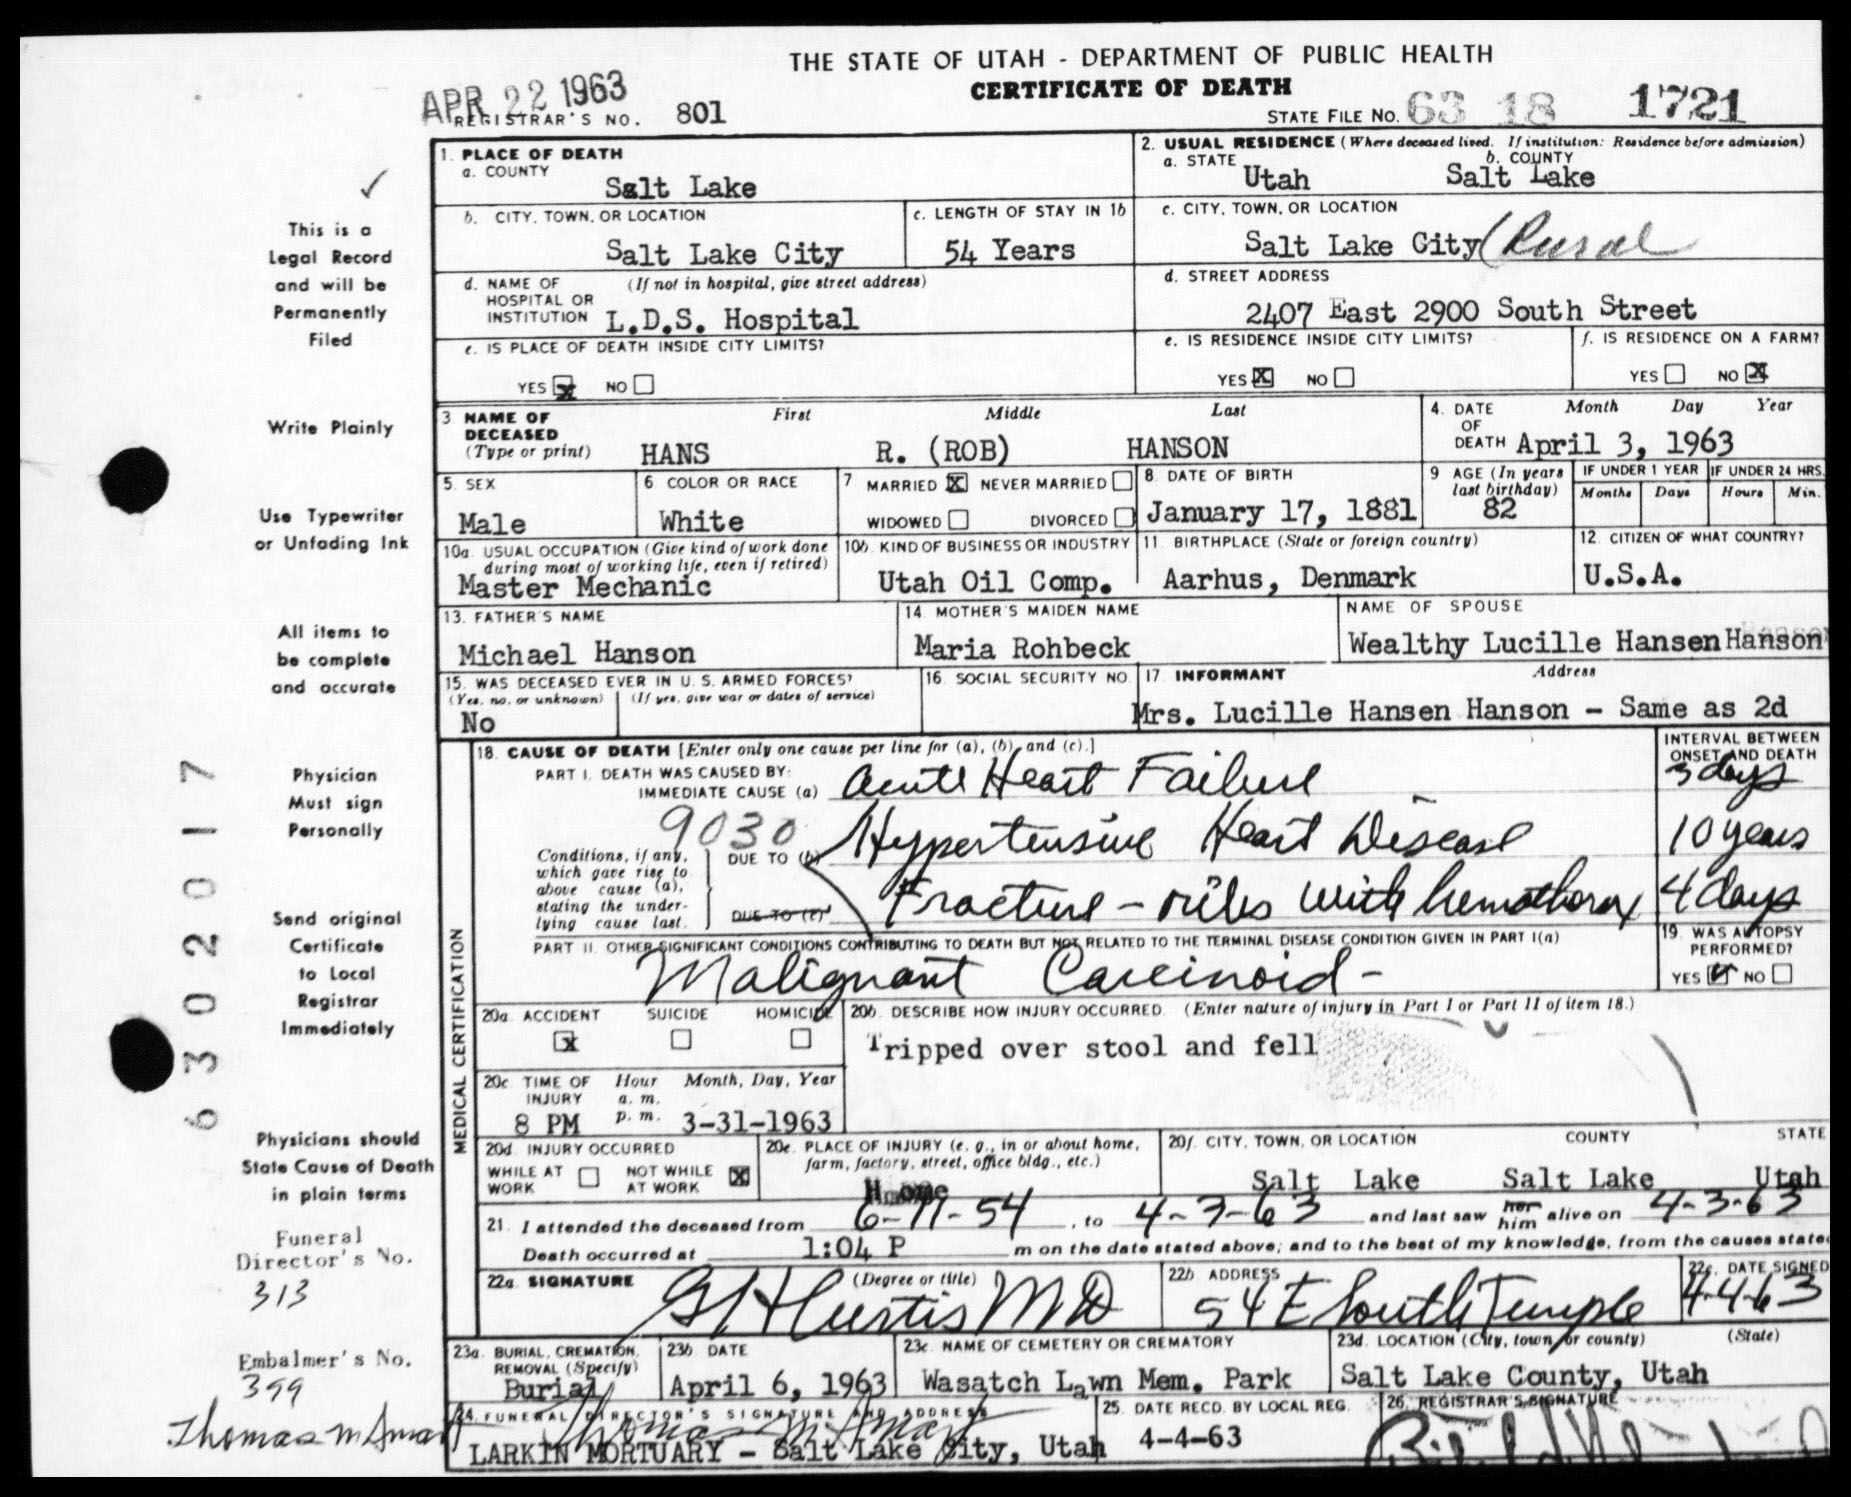 THE STATE OF UTAH - DEPARTMENT OF PUBLIC HEALTH
CERTIFICATE OF DEATH
APR 22 1963
REGISTRAR'S NO. 801
STATE FILE NO. 63 18 1721
This is a
Legal Record
and will be
Permanently
Filed
Write Plainly
Use Typewriter
or Unfading Ink
All items to
be complete
and accurate
Physician
Must sign
Personally
Send original
Certificate
to Local
Registrar
Immediately
Physicians should
State Cause of Death
in plain terms
Funeral
Director's No.
313
Embalmer's No.
399
Thomas M Smart
6302017
1. PLACE OF DEATH
a. COUNTY
Salt Lake
2. USUAL RESIDENCE (Where deceased lived. If institution: Residence before admission)
a. STATE b. COUNTY
Utah Salt Lake
b. CITY, TOWN, OR LOCATION
Salt Lake City
c. LENGTH OF STAY IN 1b
54 Years
c. CITY, TOWN, OR LOCATION
Salt Lake City (Rural
d. NAME OF (If not in hospital, give street address)
HOSPITAL OR
INSTITUTION L.D.S. Hospital
d. STREET ADDRESS
2407 East 2900 South Street
e. IS PLACE OF DEATH INSIDE CITY LIMITS?
YES X NO
e. IS RESIDENCE INSIDE CITY LIMITS?
YES X NO
f. IS RESIDENCE ON A FARM?
YES NO X
3 NAME OF First Middle Last
DECEASED
(Type or print) HANS R. (ROB) HANSON
4. DATE Month Day Year
OF
DEATH April 3, 1963
5. SEX
Male
6 COLOR OR RACE
White
7 MARRIED X NEVER MARRIED
WIDOWED DIVORCED
8. DATE OF BIRTH
January 17, 1881
9 AGE (In years
last birthday)
82
IF UNDER 1 YEAR IF UNDER 24 HRS.
Months Days Hours Min.
10a. USUAL OCCUPATION (Give kind of work done
during most of working life, even if retired)
Master Mechanic
10b. KIND OF BUSINESS OR INDUSTRY
Utah Oil Comp.
11. BIRTHPLACE (State or foreign country)
Aarhus, Denmark
12. CITIZEN OF WHAT COUNTRY?
U.S.A.
13. FATHER'S NAME
Michael Hanson
14. MOTHER'S MAIDEN NAME
Maria Rohbeck
NAME OF SPOUSE
Wealthy Lucille Hansen Hanson
15. WAS DECEASED EVER IN U. S. ARMED FORCES?
(Yes, no, or unknown) (If yes, give war or dates of service)
No
16. SOCIAL SECURITY NO.
17. INFORMANT Address
Mrs. Lucille Hansen Hanson - Same as 2d
MEDICAL CERTIFICATION
18. CAUSE OF DEATH [Enter only one cause per line for (a), (b), and (c).]
INTERVAL BETWEEN
ONSET AND DEATH
PART I. DEATH WAS CAUSED BY:
IMMEDIATE CAUSE (a) Acute Heart Failure 3 days
9030
Conditions, if any,
which gave rise to
above cause (a),
stating the under-
lying cause last.
DUE TO (b) Hypertensive Heart Disease 10 years
DUE TO (c) Fracture - ribs with hemothorax 4 days
PART II. OTHER SIGNIFICANT CONDITIONS CONTRIBUTING TO DEATH BUT NOT RELATED TO THE TERMINAL DISEASE CONDITION GIVEN IN PART I(a)
Malignant Carcinoid -
19. WAS AUTOPSY
PERFORMED?
YES NO
20a. ACCIDENT SUICIDE HOMICIDE
X
20b. DESCRIBE HOW INJURY OCCURRED. (Enter nature of injury in Part I or Part II of item 18.)
Tripped over stool and fell
20c TIME OF Hour Month, Day, Year
INJURY a. m.
8 PM p. m. 3-31-1963
20d. INJURY OCCURRED
WHILE AT WORK NOT WHILE AT WORK X
20e. PLACE OF INJURY (e. g., in or about home,
farm, factory, street, office bldg., etc.)
Home
20f. CITY, TOWN, OR LOCATION COUNTY STATE
Salt Lake Salt Lake Utah
21. I attended the deceased from 6-11-54, to 4-3-63 and last saw her him alive on 4-3-63
Death occurred at 1:04 P m on the date stated above; and to the best of my knowledge, from the causes stated
22a. SIGNATURE (Degree or title)
Curtis MD
22b ADDRESS
54 E South Temple
22c. DATE SIGNED
4-4-63
23a. BURIAL, CREMATION,
REMOVAL (Specify)
Burial
23b. DATE
April 6, 1963
23c. NAME OF CEMETERY OR CREMATORY
Wasatch Lawn Mem. Park
23d. LOCATION (City, town, or county) (State)
Salt Lake County, Utah
24. FUNERAL DIRECTOR'S SIGNATURE AND ADDRESS
Thomas M Smart
LARKIN MORTUARY - Salt Lake City, Utah
25. DATE RECD. BY LOCAL REG.
4-4-63
26. REGISTRAR'S SIGNATURE